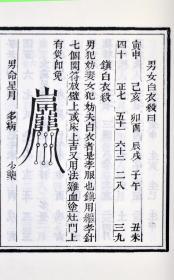 男女白衣殺日
寅申 己亥 卯酉 辰戌 子午 丑未
四十 正七 五十一 六十二 二八 三九
鎮白衣殺
男犯妨妻女犯妨夫白衣者是孝服也鎮用孝針
七個同符放壁上或床上吉又用法雞血塗灶門上
有災即免
男命星月 多病 少